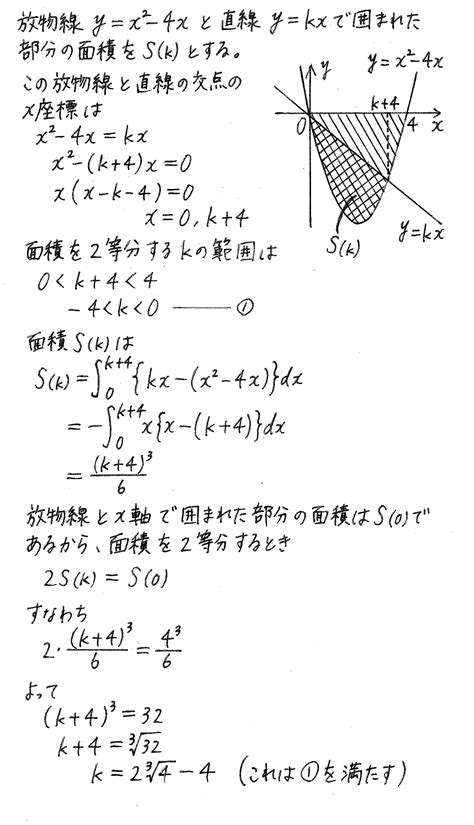 放物線 y=x²-4x と直線 y=kx で囲まれた
部分の面積を S(k) とする。
この放物線と直線の交点の
x座標は
x²-4x=kx
x²-(k+4)x=0
x(x-k-4)=0
x=0, k+4
y
y=x²-4x
k+4
0
4
x
S(k)
y=kx
面積を2等分するkの範囲は
0<k+4<4
-4<k<0 ——— ①
面積S(k)は
S(k)=∫₀^{k+4}{kx-(x²-4x)}dx
=-∫₀^{k+4}x{x-(k+4)}dx
=(k+4)³/6
放物線とx軸で囲まれた部分の面積はS(0)で
あるから、面積を2等分するとき
2S(k)=S(0)
すなわち
2·(k+4)³/6=4³/6
よって
(k+4)³=32
k+4=∛32
k=2∛4-4 (これは①を満たす)